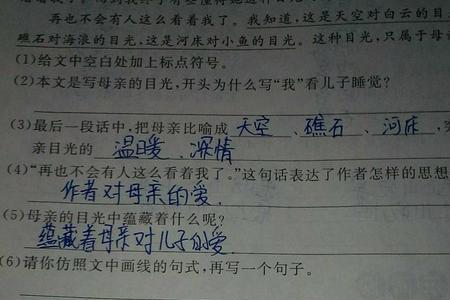 再也不会有人这么看着我了。我知道，这是天空对白云的目
礁石对海浪的目光，这是河床对小鱼的目光。这种目光，只属于母
(1)给文中空白处加上标点符号。
(2)本文是写母亲的目光，开头为什么写“我”看儿子睡觉？
(3)最后一段话中，把母亲比喻成 天空 、礁石 、河床 ，
亲目光的 温暖 、深情
(4)“再也不会有人这么看着我了。”这句话表达了作者怎样的思想
作者对母亲的爱.
(5)母亲的目光中蕴藏着什么呢？
蕴藏着母亲对儿子的爱.
(6)请你仿照文中画线的句式，再写一个句子。